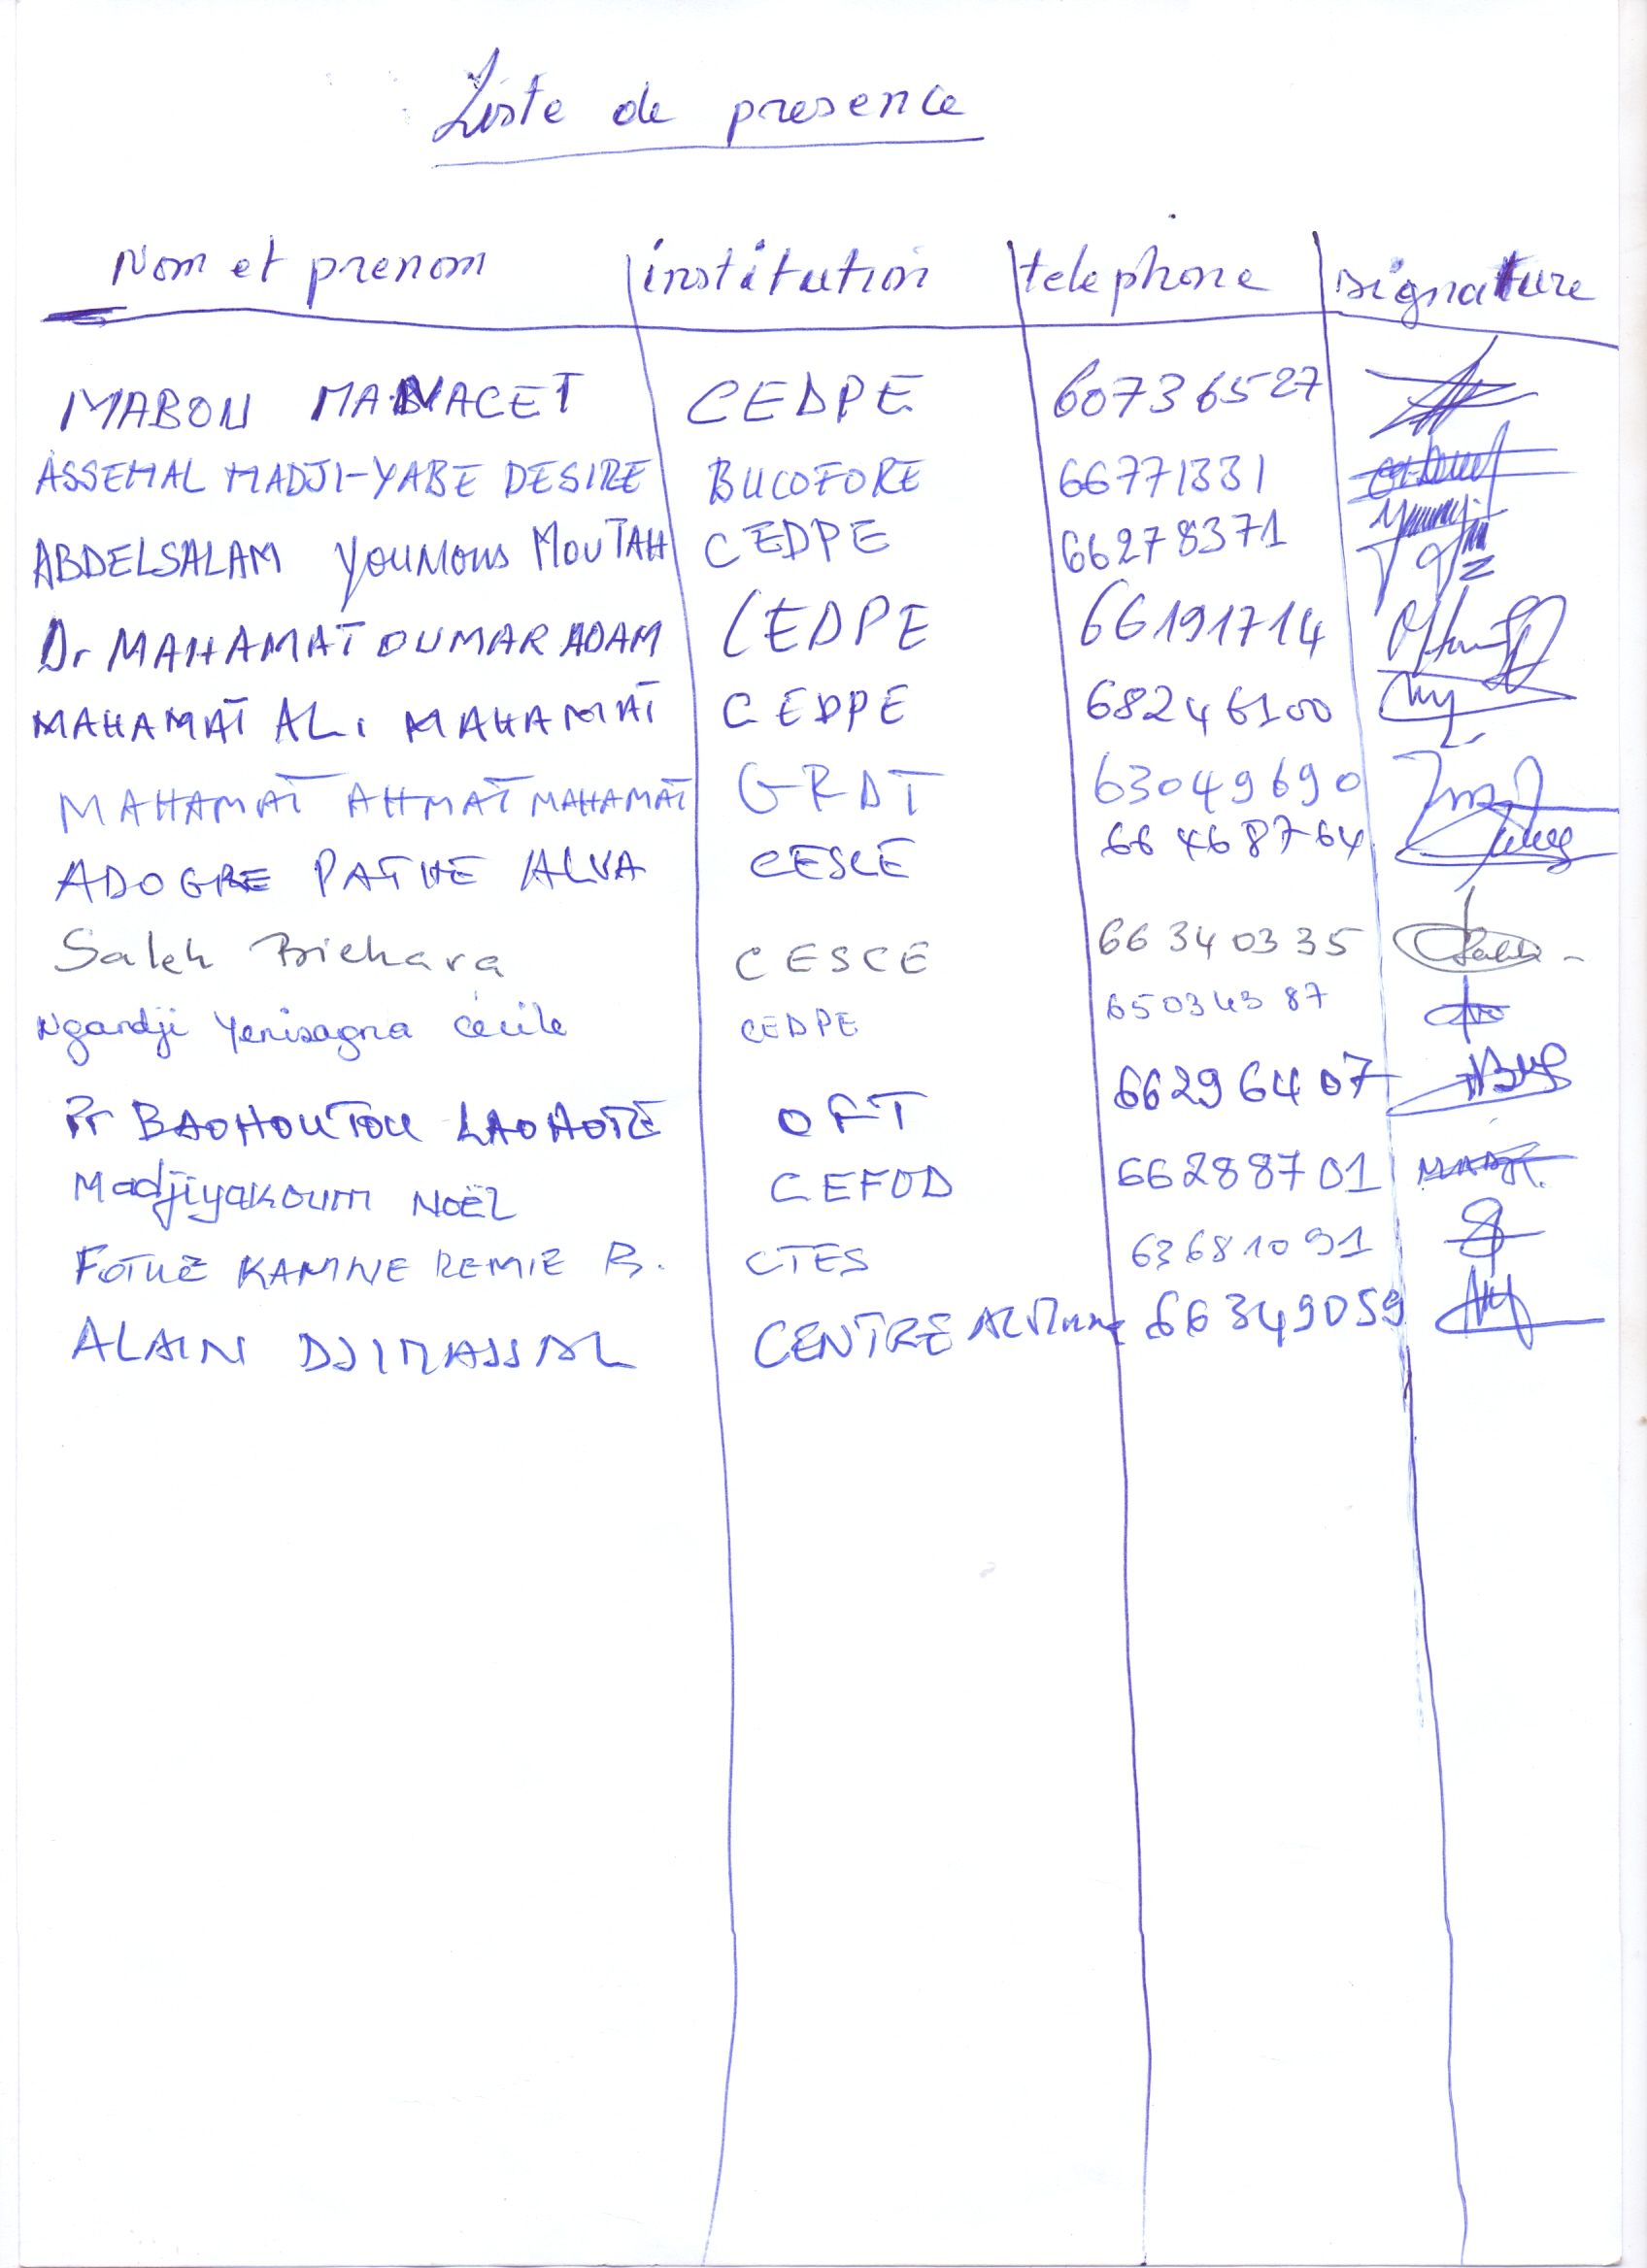 Liste de presence
Nom et prenom institution telephone signature
MABON MANACET CEDPE 60736527
ASSEMAL MADJI-YABE DESIRE BUCOFORE 66771331
ABDELSALAM YOUNOUS MOUTAH CEDPE 66278371
Dr MAHAMAT OUMAR ADAM CEDPE 66191714
MAHAMAT ALi MAHAMAT CEDPE 68246100
MAHAMAT AHMAT MAHAMAT GRDT 63049690
ADOGRE PATHE CESCE 66468764
Saleh Bichara CESCE 66 34 03 35
Ngardji Yenisagna Cécile CEDPE 65034387
Pr BAOHOUTOU LAOHOTE OFT 66296407
Madjiyakoum NOËL CEFOD 66288701
FOTUE KAMNE REMIE B. CTES 63681091
ALAIN DJIMASSAL CENTRE 66349059